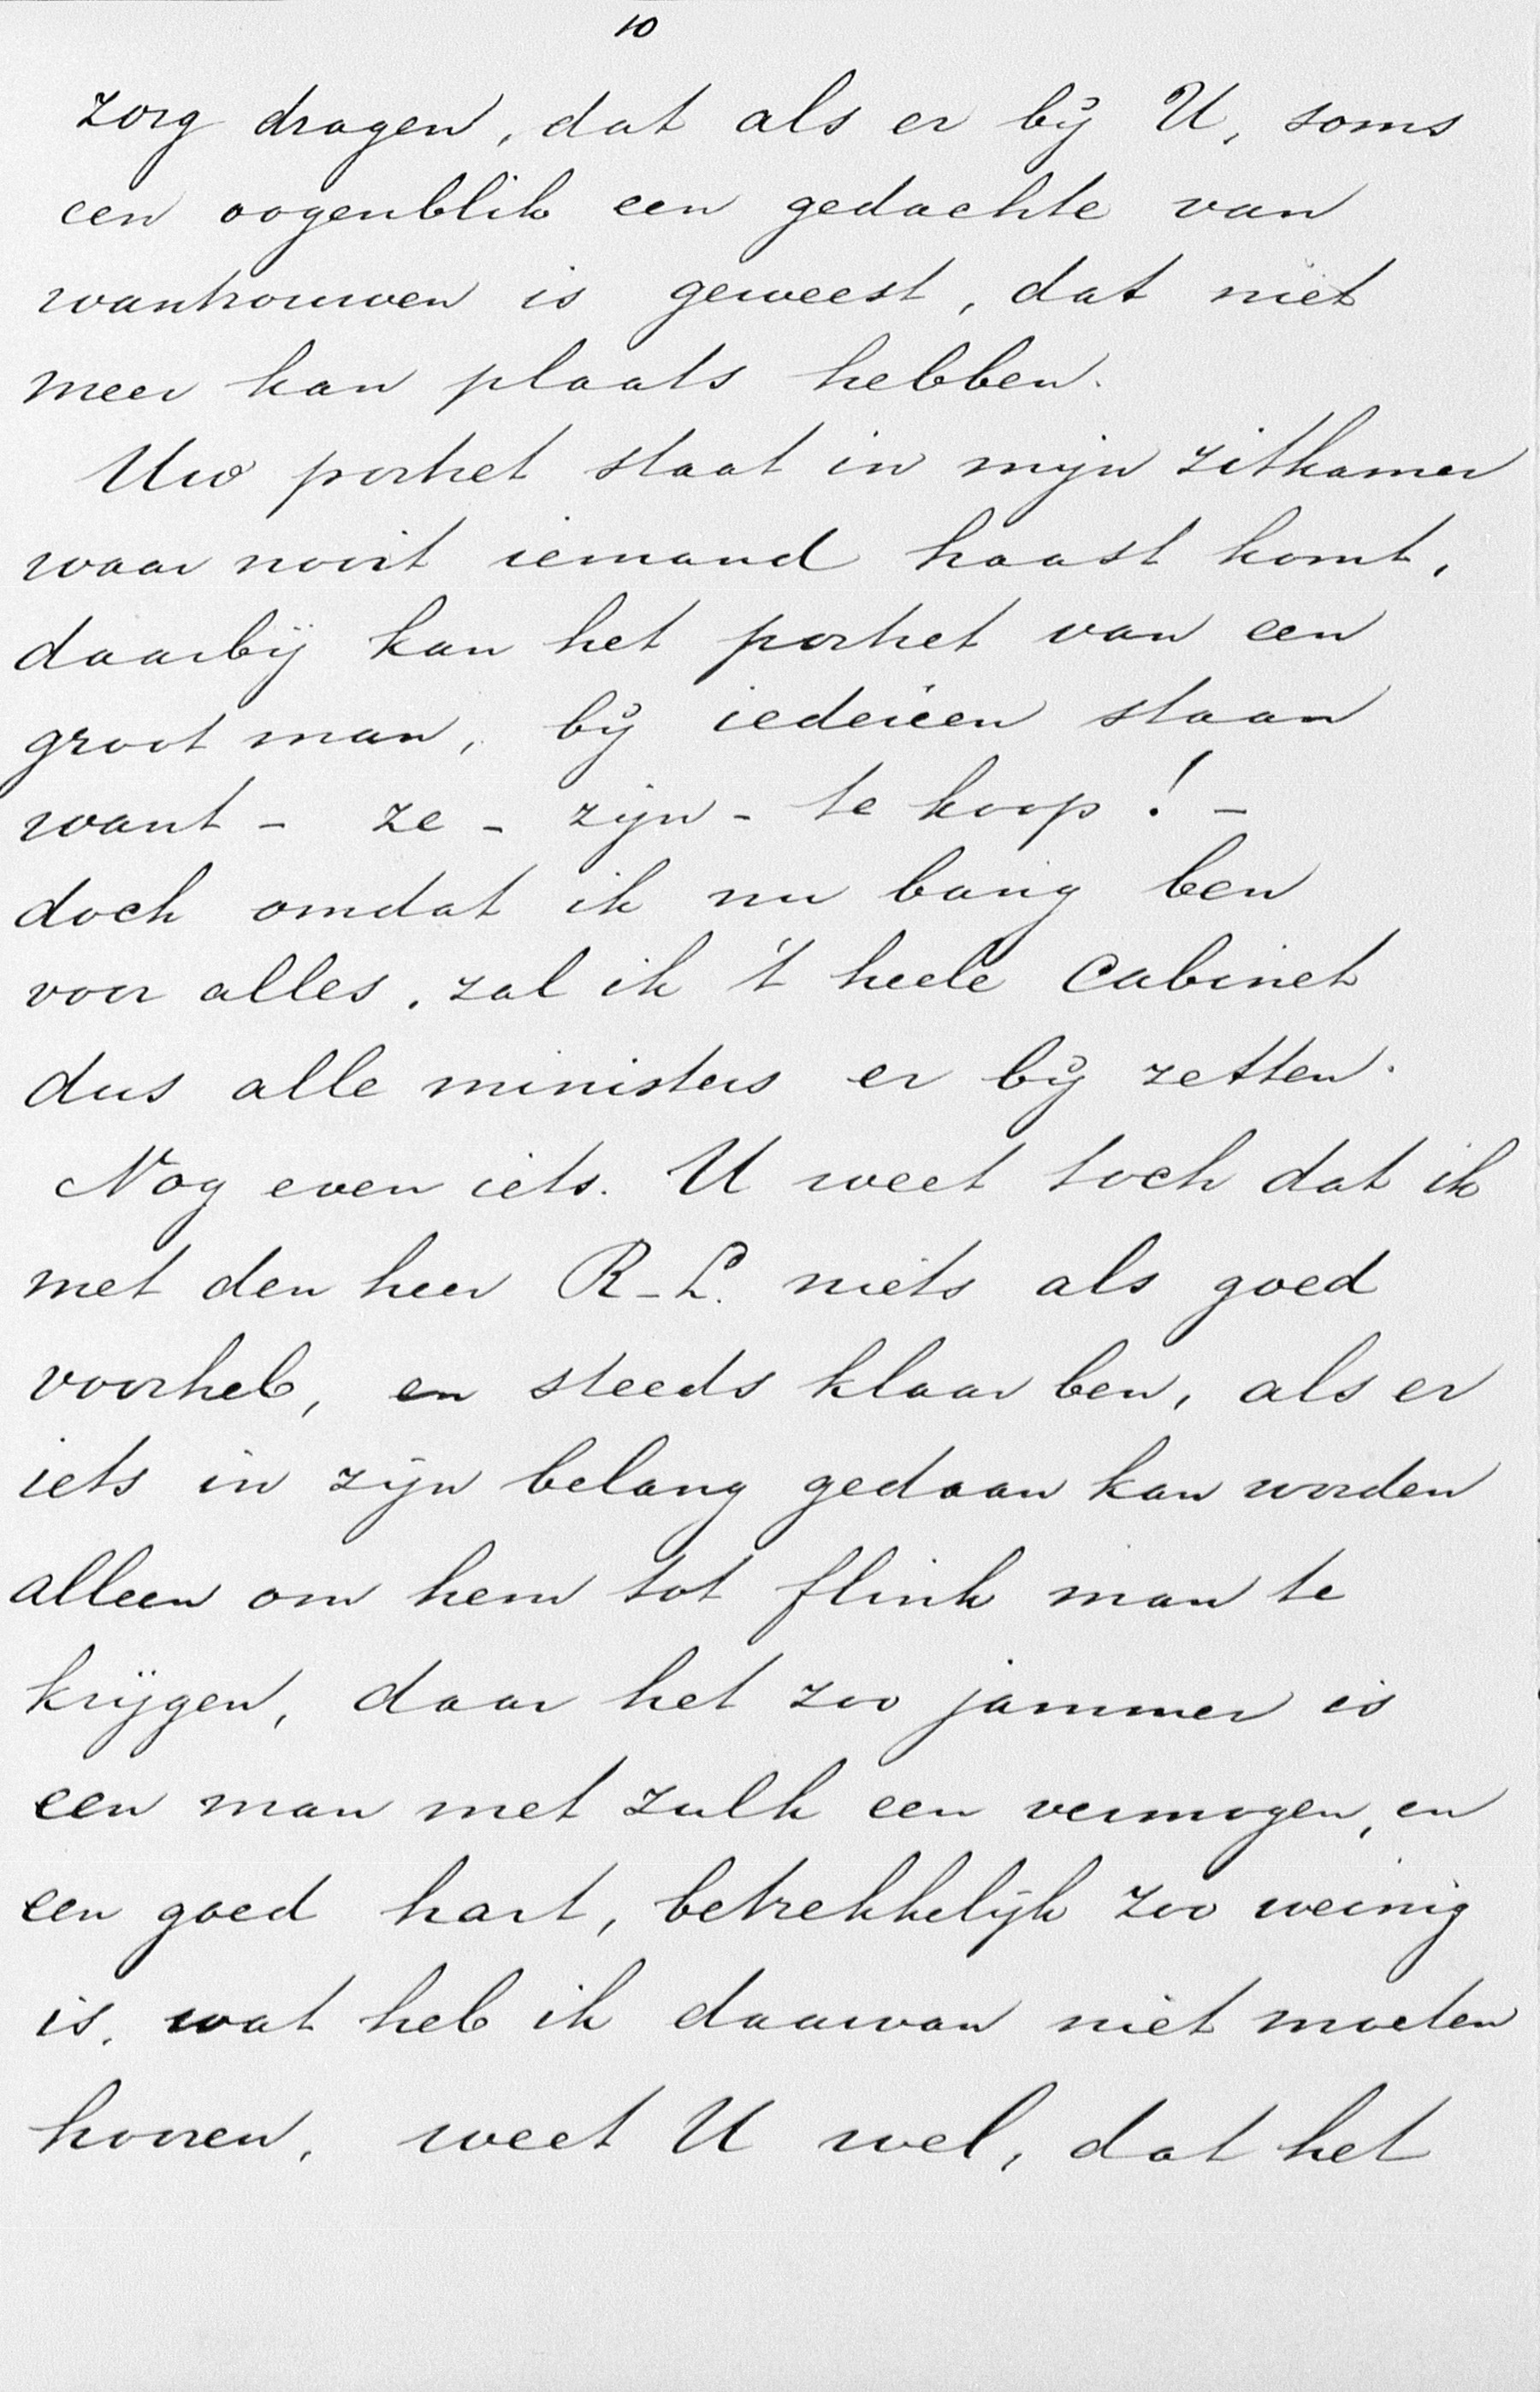 10
zorg dragen, dat als er bij U, soms
een oogenblik een gedachte van
wantrouwen is geweest, dat niet
meer kan plaats hebben.
Uw portret staat in mijn zitkamer
waar nooit iemand haast komt,
daarbij kan het portret van een
groot man, bij iedereen staan
want - ze - zijn - te koop! -
doch omdat ik nu bang ben
voor alles, zal ik 't heele Cabinet
dus alle ministers er bij zetten.
Nog even iets. U weet toch dat ik
met den heer R-L. niets als goed
voorheb, en steeds klaar ben, als er
iets in zijn belang gedaan kan worden
alleen om hem tot flink man te
krijgen, daar het zoo jammer is
een man met zulk een vermogen, en
een goed hart, betrekkelijk zoo weinig
is, wat heb ik daarvan niet moeten
hooren, weet U wel, dat het